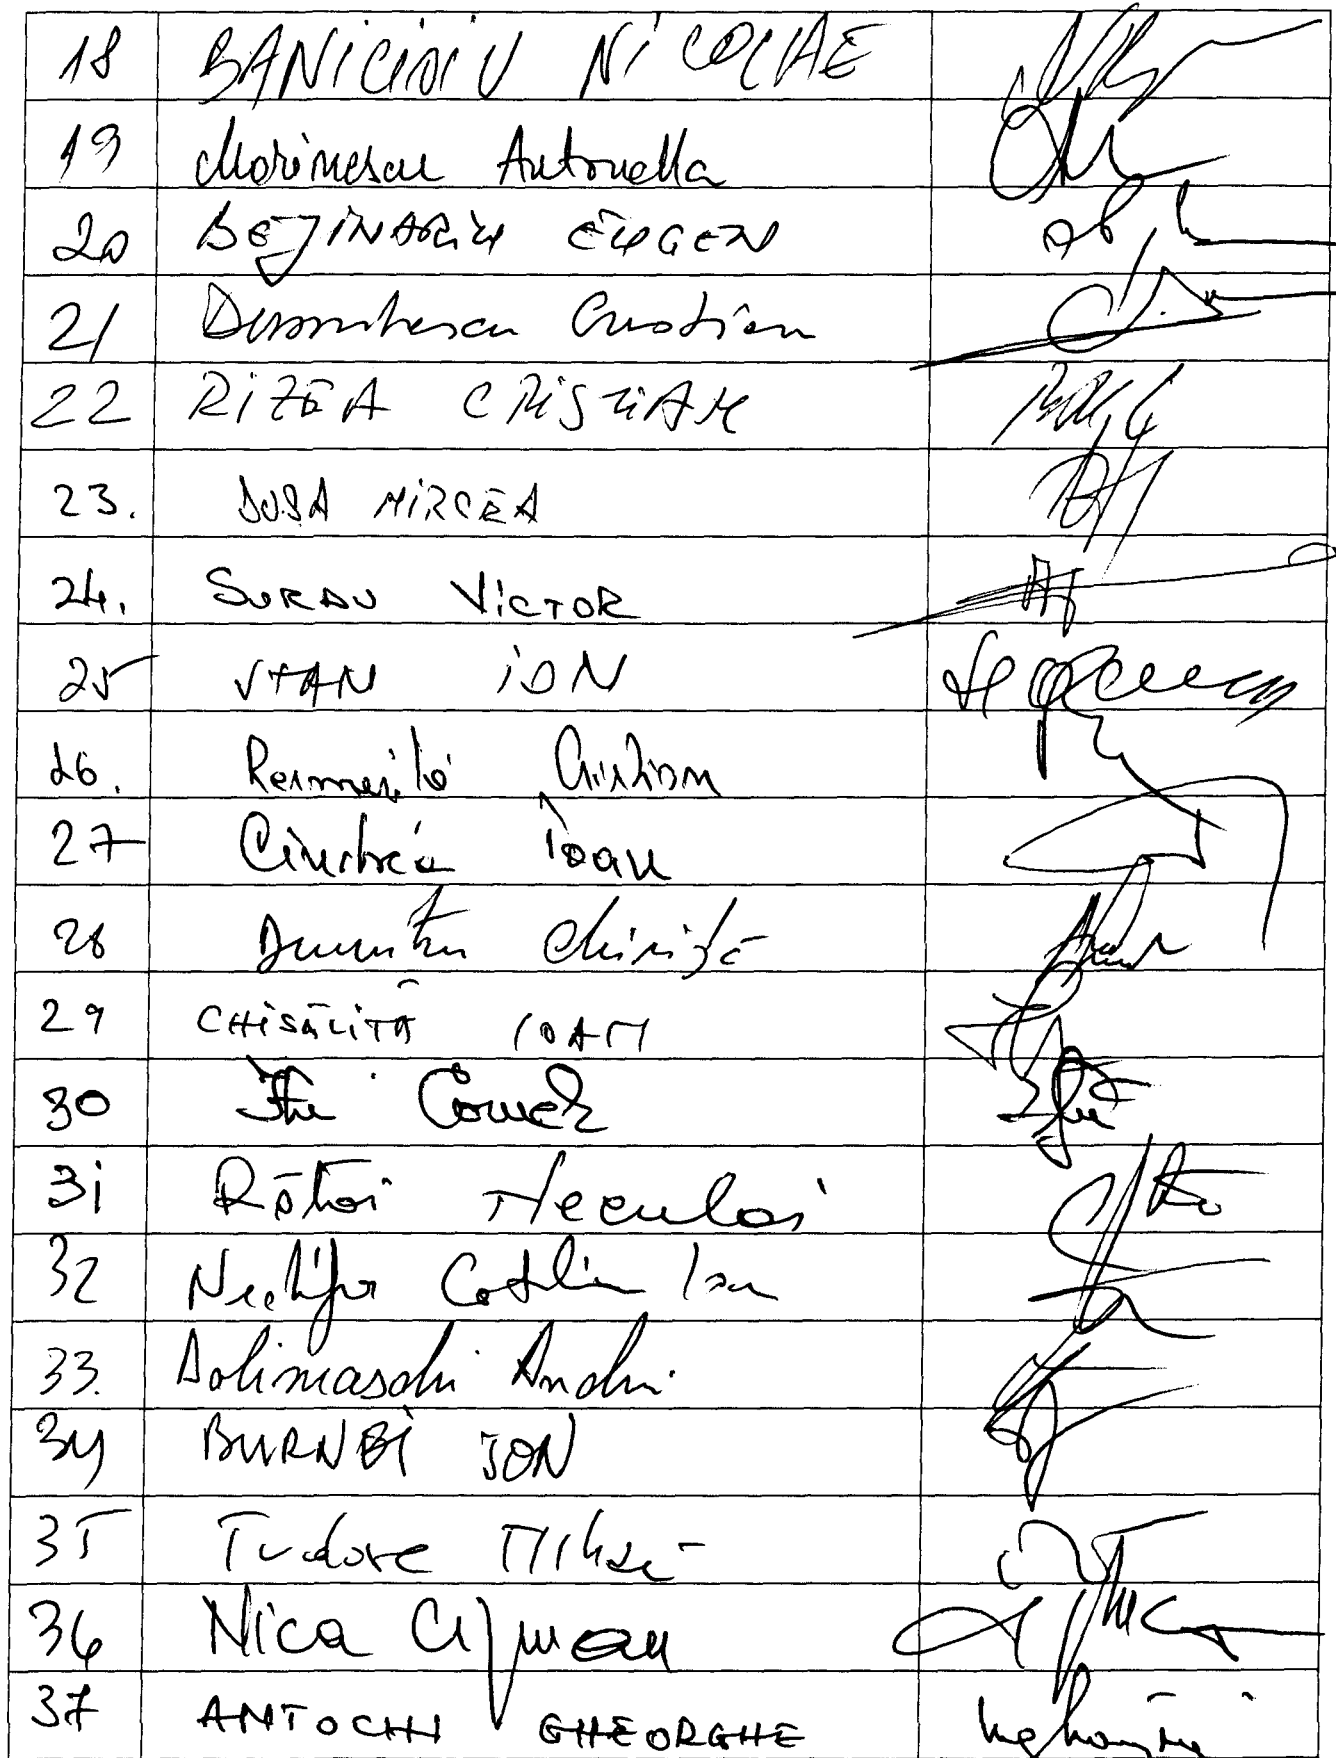 18 BANICIOIU NICOLAE
19 Marinescu Antonella
20 BEJINARIU EUGEN
21 Dumitrescu Cristian
22 RIZEA CRISTIAN
23. DUSA MIRCEA
24. SURDU VICTOR
25 STAN ION
26. Resmeriță Cristian
27 Cindrea Ioan
28 Dumitru Chiriță
29 CHISĂLIȚĂ IOAN
30 Itu Cornel
31 Rătoi Neculai
32 Nechifor Cătălin Ioan
33. Dolineaschi Andrei
34 BURNEI ION
35 Tudose Mihai
36 Nica
37 ANTOCHI GHEORGHE